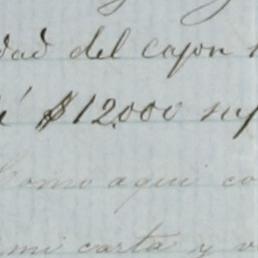 dad del cajon
$12.000
Como aqui co
mi carta y v